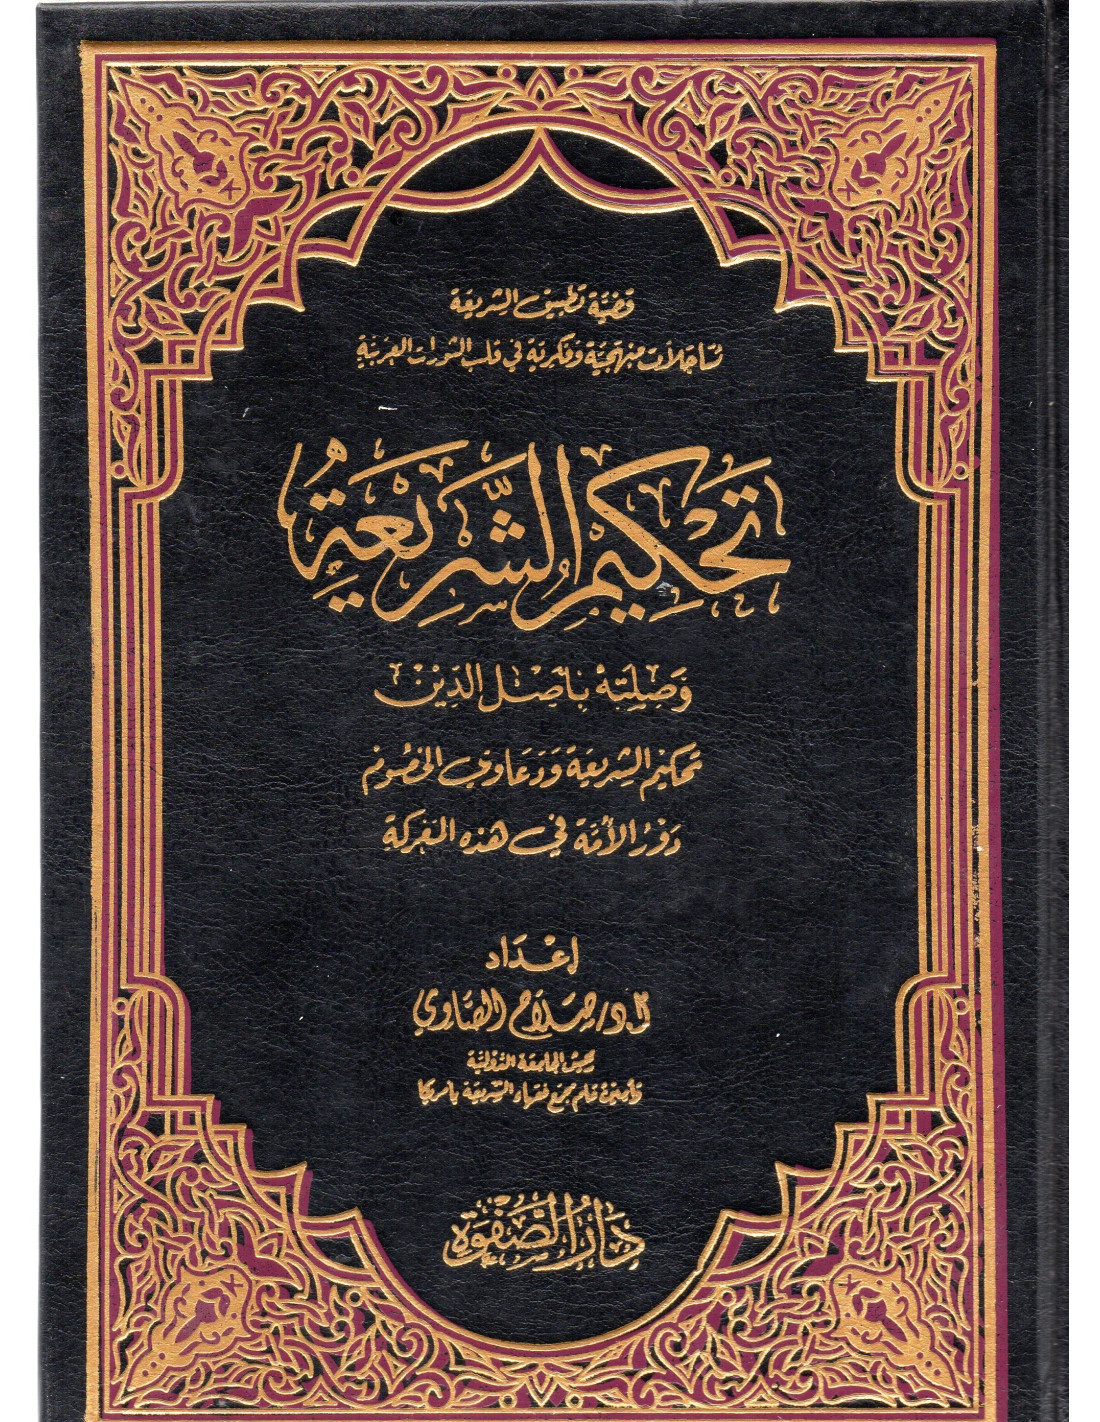 قضية تطبيق الشريعة
تساؤلات منهجية وفكرية في قلب الثورات العربية
تَحْكِيمُ الشَّرِيْعَةِ
وَصِلَتهُ بأَصْل الدِّيْنْ
تحكيم الشريعة وَدَعَاوى الخصُوم
دَوْرُ الأُمَّة في هذه المَعْركة
إعْدَاد
أ.د/صَلاح الصَّاوي
رئيس الجامعة الدولية
وأمين عام مجمع فقهاء الشريعة بأمريكا
دَارُ الصَّفْوَة